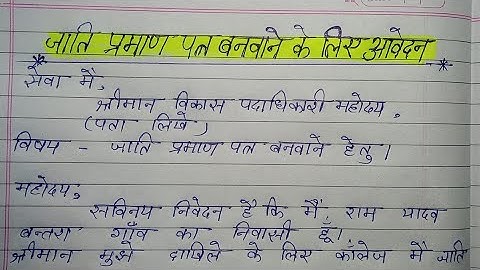 जाति प्रमाण पत्र बनवाने के लिए आवेदन
सेवा में,
श्रीमान विकास पदाधिकारी महोदय,
(पता लिखे)
विषय - जाति प्रमाण पत्र बनवाने हेतु।
महोदय,
सविनय निवेदन है कि मैं, राम यादव
बन्तरा गाँव का निवासी हूँ।
श्रीमान मुझे दाखिले के लिए कॉलेज में जाति